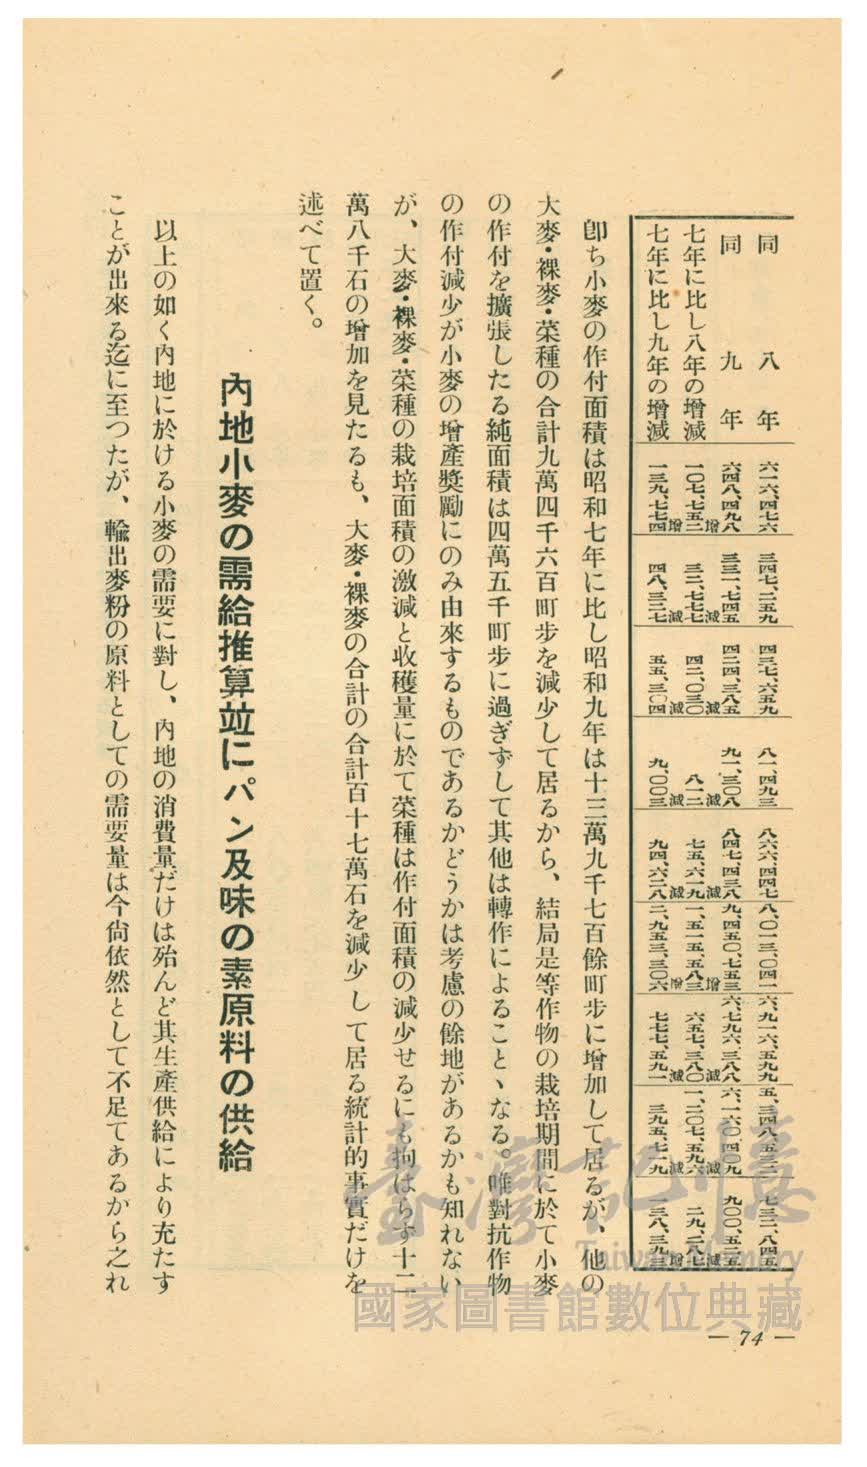 同八年 六一六、四七六 三四七、二五九 四三七、六五九 八一、四九三 八六六、四四七 八、〇一三、〇四一 六、九一六、五九九 五、三四八、五三二 七三二、八四五
同九年 六四八、四九八 三三一、七四五 四二四、三八五 九一、三〇八 八四七、四三八 九、四五〇、七五三 六、七九六、三八八 六、一六〇、四〇九 九〇〇、五二五
七年に比し八年の增減 增一〇七、七五二 減三二、七七七 減四二、〇三〇 減八一二 減七五、六一九 增一、五一五、五八三 減六五七、三八〇 減一、二〇七、五九六 減二九、二八七
七年に比し九年の增減 增一三九、七七四 減四八、三二七 減五五、三〇四 減九、〇〇三 減九四、六二八 增二、九五三、三〇六 減七七七、五九一 減三九五、七一九 增一三八、三九三
卽ち小麥の作付面積は昭和七年に比し昭和九年は十三萬九千七百餘町步に增加して居るが、他の
大麥・裸麥・菜種の合計九萬四千六百町步を減少して居るから、結局是等作物の栽培期間に於て小麥
の作付を擴張したる純面積は四萬五千町步に過ぎずして其他は轉作によることゝなる。唯對抗作物
の作付減少が小麥の增產奬勵にのみ由來するものであるかどうかは考慮の餘地があるかも知れない
が、大麥・裸麥・菜種の栽培面積の激減と收穫量に於て菜種は作付面積の減少せるにも拘はらず十二
萬八千石の增加を見たるも、大麥・裸麥の合計の合計百十七萬石を減少して居る統計的事實だけを
述べて置く。
內地小麥の需給推算竝にパン及味の素原料の供給
以上の如く內地に於ける小麥の需要に對し、內地の消費量だけは殆んど其生產供給により充たす
ことが出來る迄に至つたが、輸出麥粉の原料としての需要量は今尙依然として不足てあるから之れ
— 74 —
臺灣記憶
Taiwan Memory
國家圖書館數位典藏